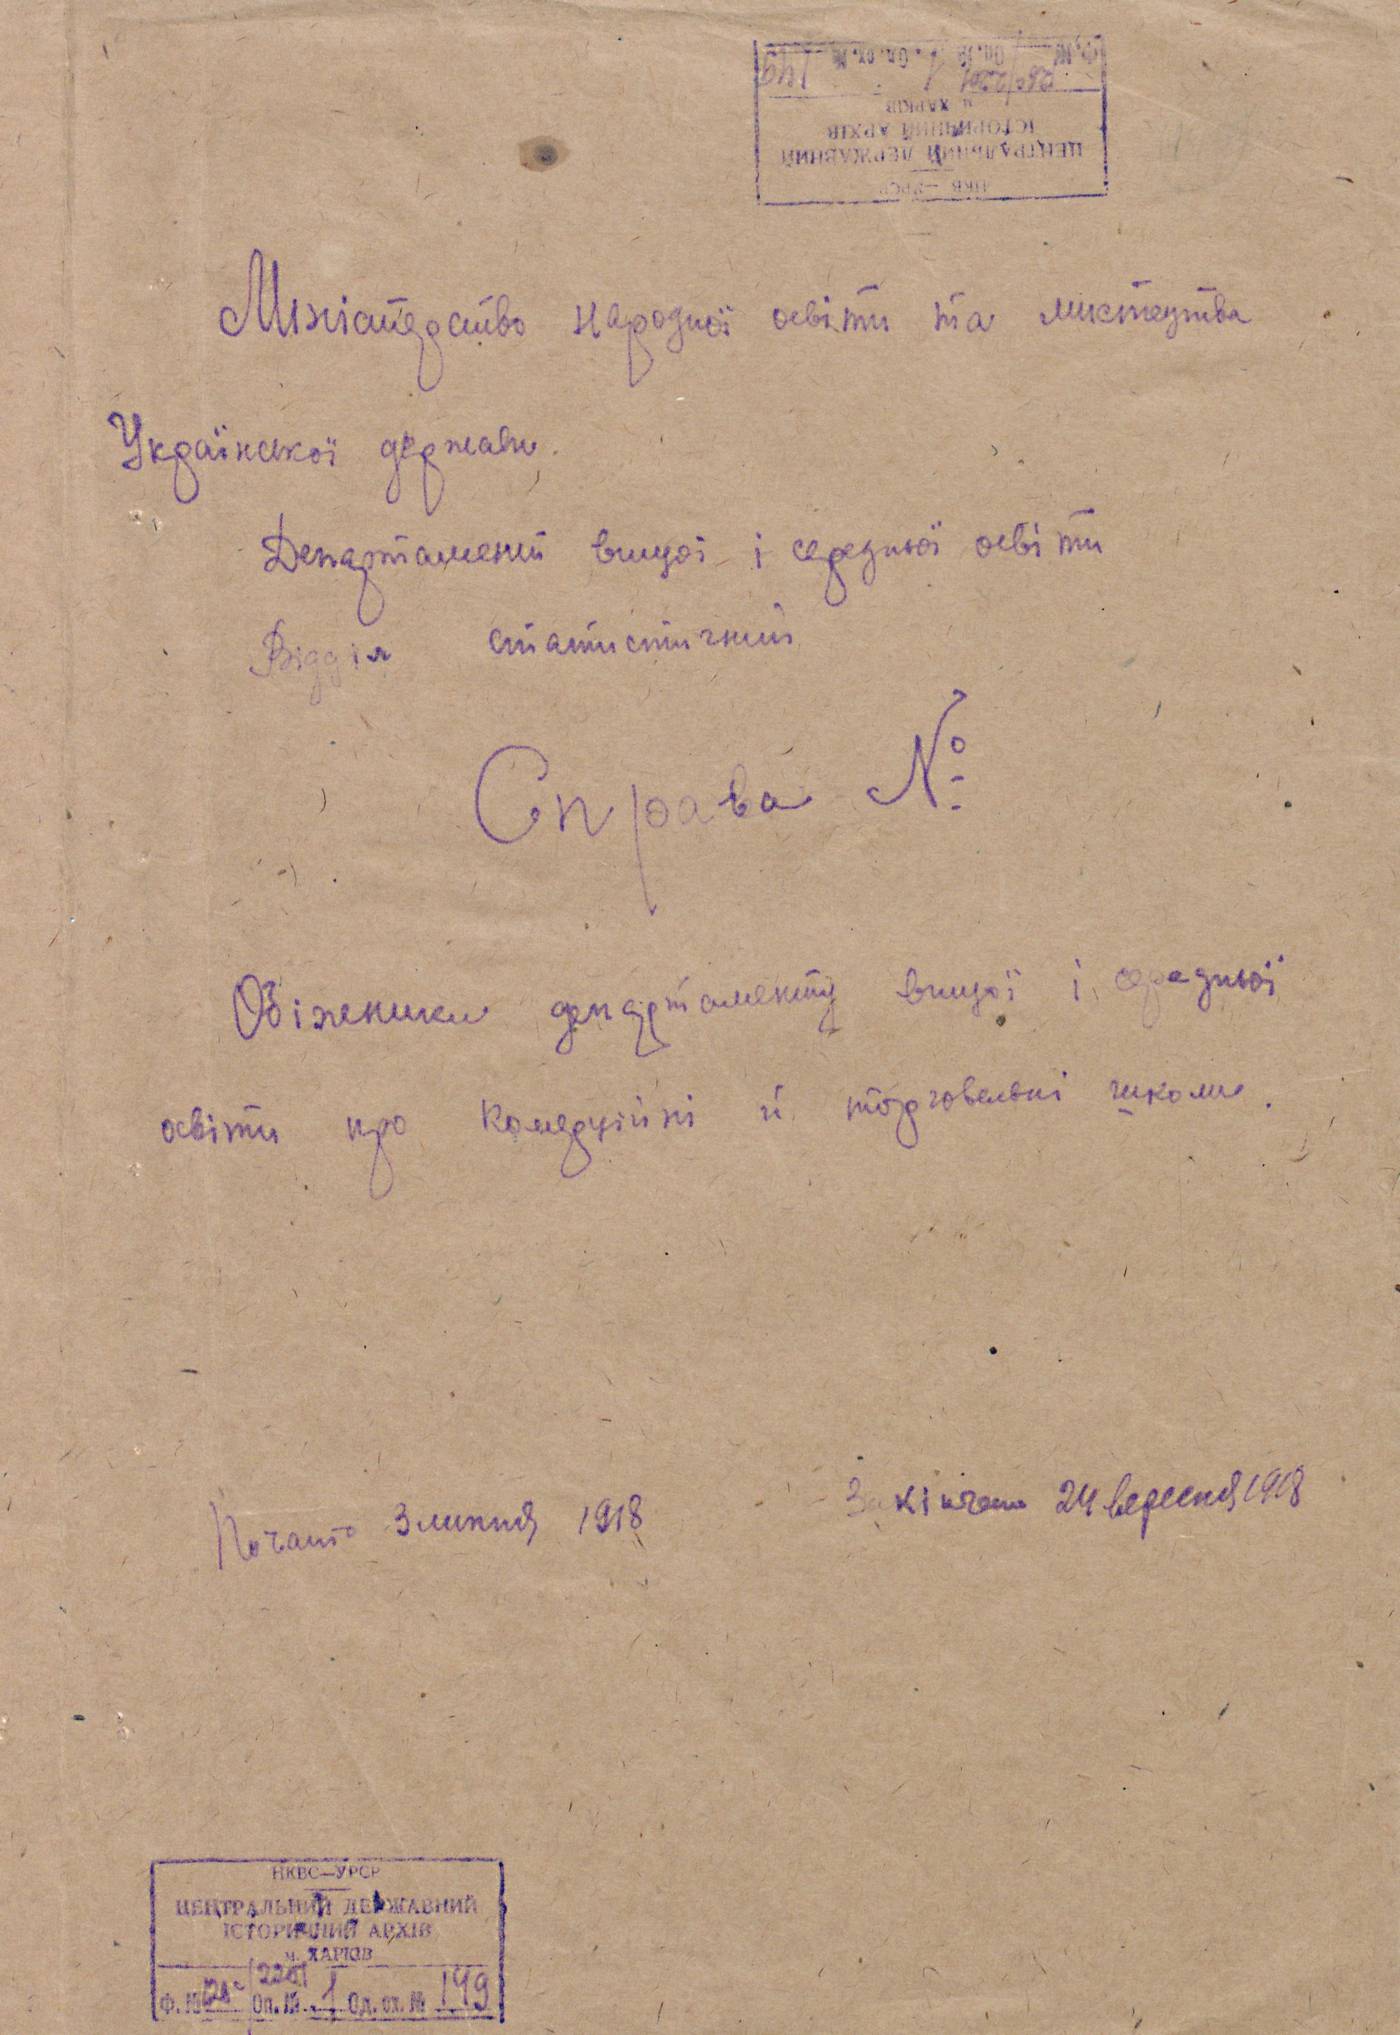 НКВ — УРСР
ЦЕНТРАЛЬНИЙ ДЕРЖАВНИЙ
ІСТОРИЧНИЙ АРХІВ
м. ХАРКІВ
Ф. № Оп. № 1 Од. сх. № 149
Міністерство народної освіти та мистецтва
Української держави.
Департамент вищої і середньої освіти
Відділ статистичний
Справа №
Обіжники департаменту вищої і середньої
освіти про комерційні й торговельні школи.
Почато 3 липня 1918
Закінчено 24 вересня 1918
НКВС—УРСР
ЦЕНТРАЛЬНИЙ ДЕРЖАВНИЙ
ІСТОРИЧНИЙ АРХІВ
м. ХАРКІВ
2201
Ф. № Оп. № 1 Од. сх. № 149